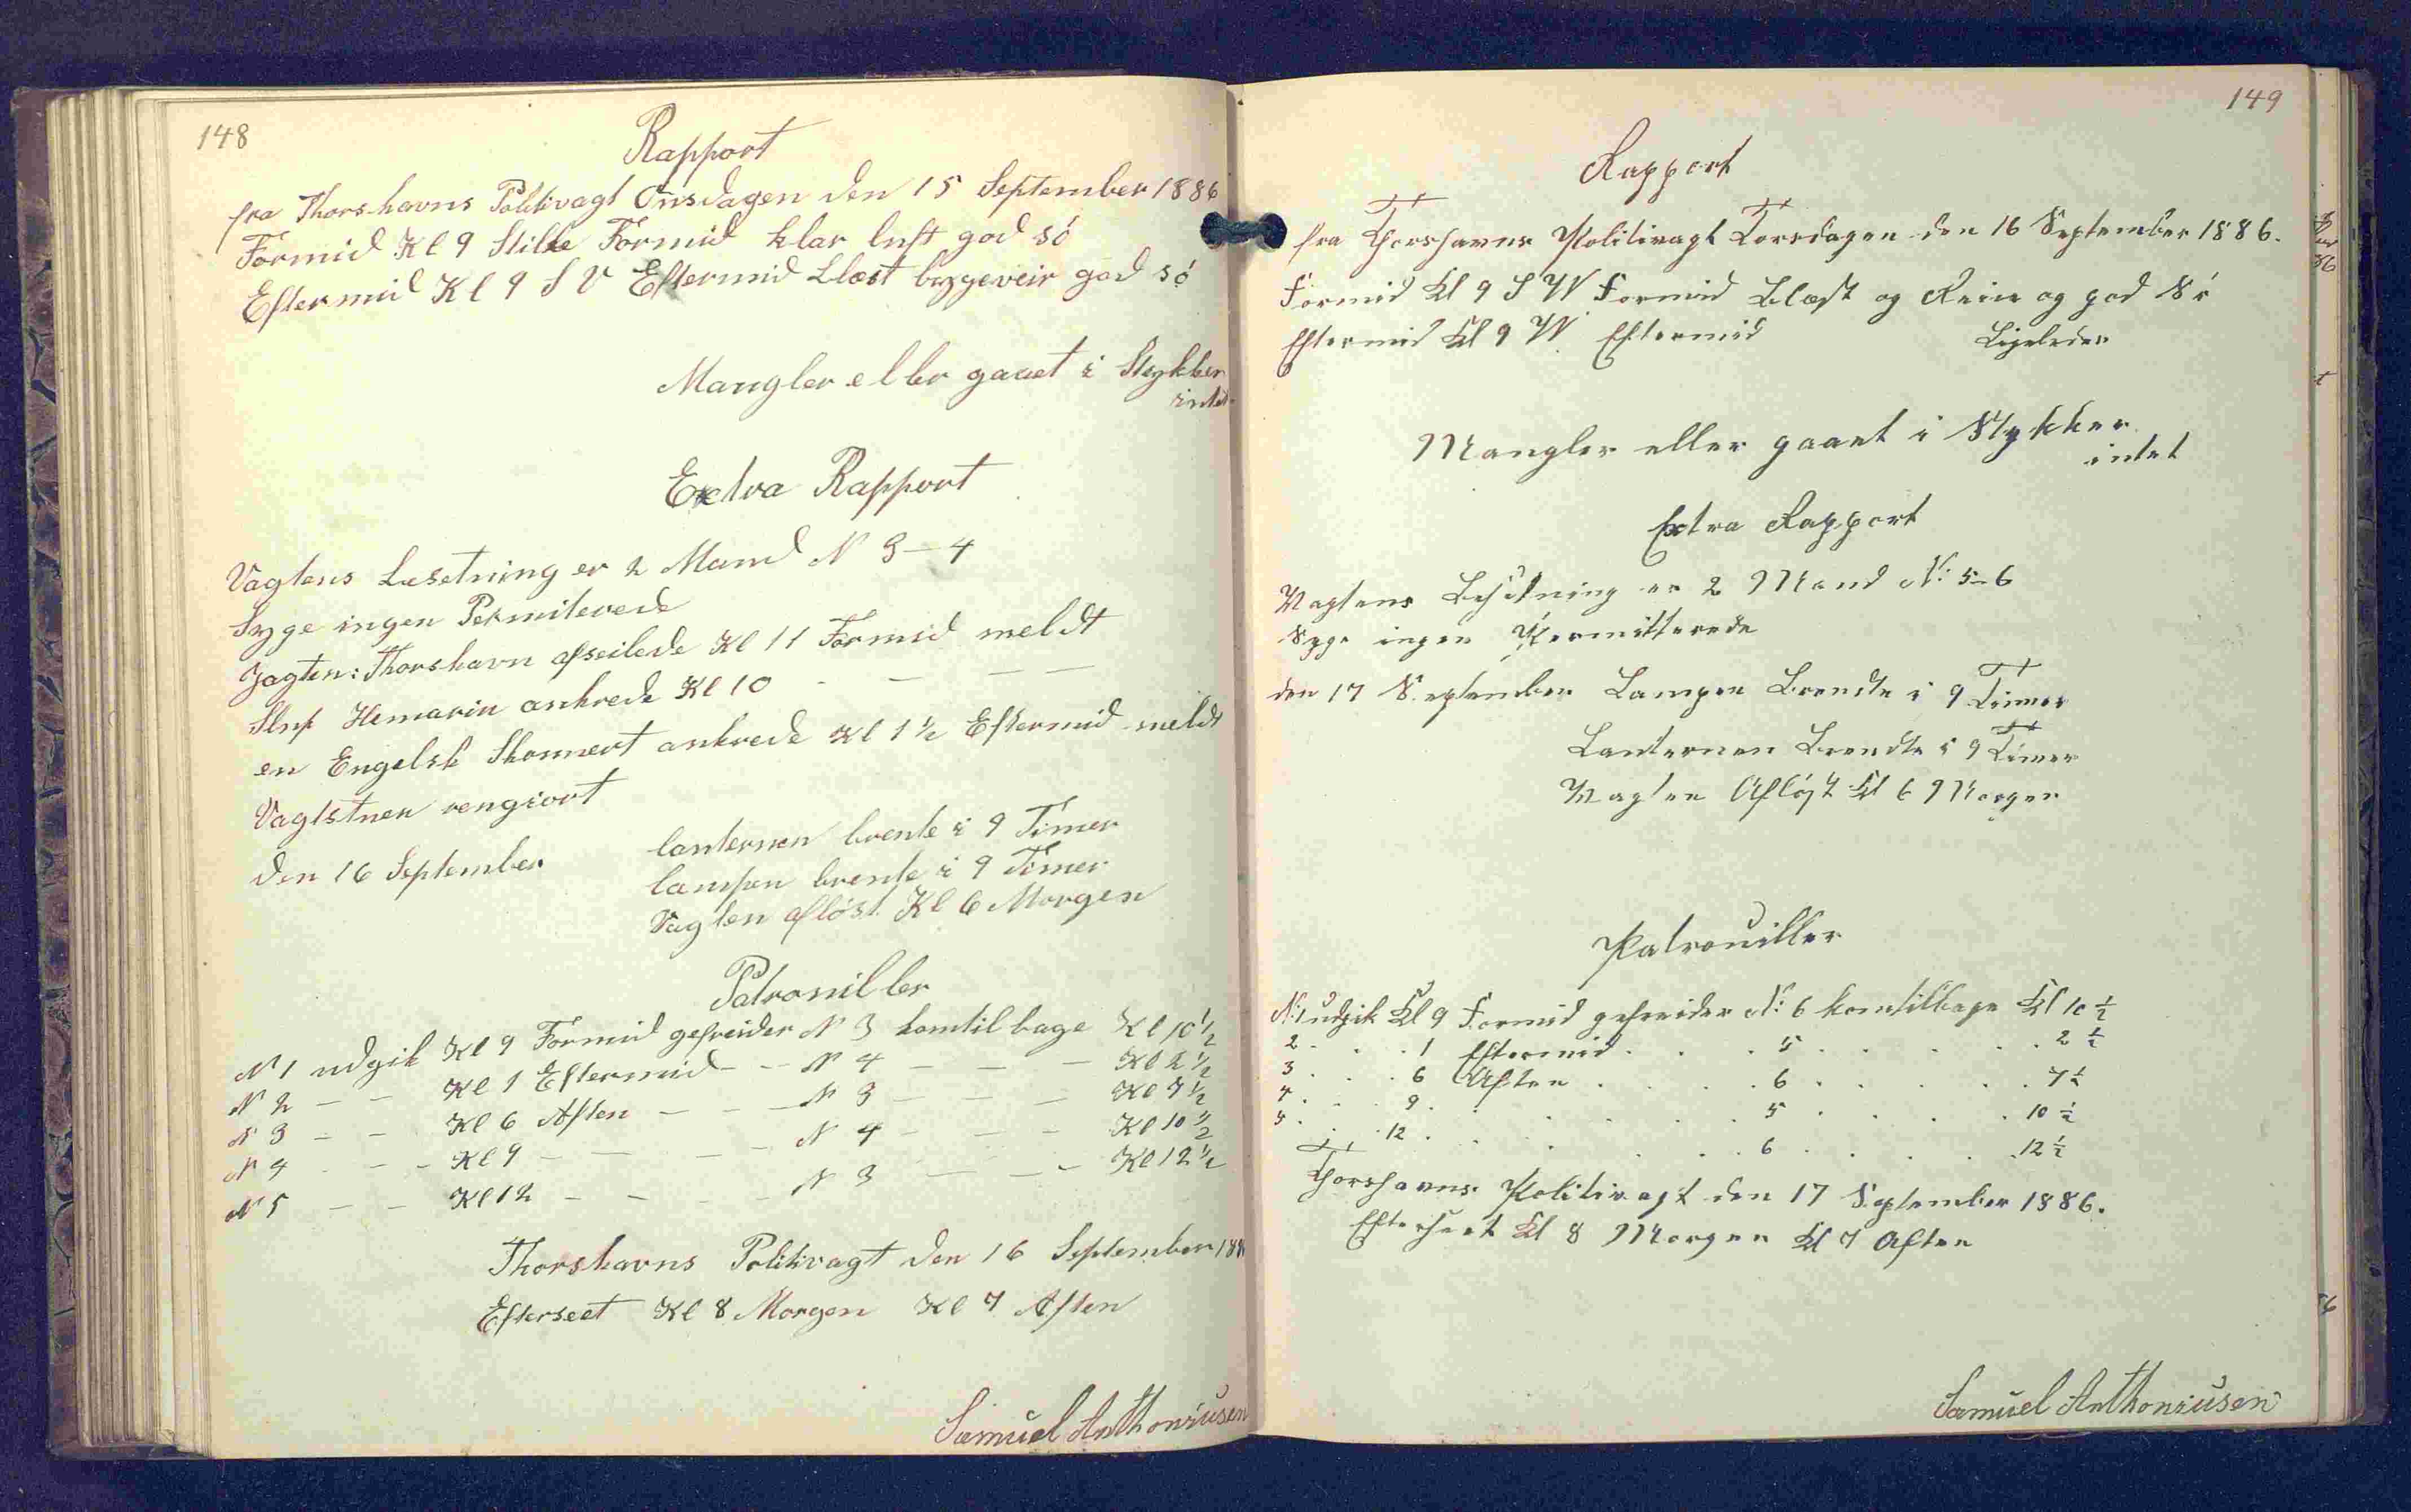 148
Rapport
fra Thorshavns Politivagt Onsdagen den 15 September 1886
Formid Kl 9 Stille Formid klar luft god só
Eftermid Kl 9 S V Eftermid blæst bygeveir god só
Mangler eller gaaet i Stykker
intet
Extra Rapport
Vagtens besetning er 2 Mand N 3 — 4
Syge ingen Permiterede
Jagten: Thorshavn afseilede Kl 11 Formid meldt
Slup Hemarin ankrede Kl 10 - — — —
en Engelsk Skonnert ankrede Kl 1 ½ Eftermid meldt
Vagtstuen rengiort
den 16 September
lanternen brente i 9 Timer
lampen brente i 9 Timer
Vagten aflóst Kl 6 Morgen
Patrouiller
N 1 udgik Kl 9 Formid gefreider N 3 komtilbage Kl 10 ½
N 2 — — Kl 1 Eftermid — — N 4 — — — Kl 2 ½
N 3 — — Kl 6 Aften — — — N 3 — — — Kl 7 ½
N 4 - - - Kl 9 — — — — N 4 — — — Kl 10 ½
N 5 — — Kl 12 — — — - N 3 — — — Kl 12 ½
Thorshavns Politivagt den 16 September 188
Efterseet Kl 8 Morgen Kl 7 Aften
Samuel Anthoniusen
149
Rapport
fra Thorshavns Politivagt Torsdagen den 16 September 1886.
Formid Kl 9 S W Formid Blæst og Rein og god Só
Eftermid Kl 9 W Eftermid Ligeledes
Mangler eller gaaet i Stykker
intet
Extra Rapport
Wagtens Besetning er 2 Mand N: 5-6
Syge ingen Permitterede
den 17 September Lampen Brendte i 9 Timer
Lanternen Brendte i 9 Timer
Wagten Aflóst Kl 6 Morgen
Patrouiller
N: 1 udgik Kl 9 Formid gefreider N: 6 komtilbage Kl 10 ½
2 . . . 1 Eftermid . . . 5 . . . . . 2 ½
3 . . . 6 Aften . . . . 6 . . . . . 7 ½
4 . . . 9 . . . . . . 5 . . . . . 10 ½
5 . . . 12 . . . . . . 6 . . . . . 12 ½
Thorshavns Politivagt den 17 September 1886.
Efterseet Kl 8 Morgen Kl 7 Aften
Samuel Anthoniusen